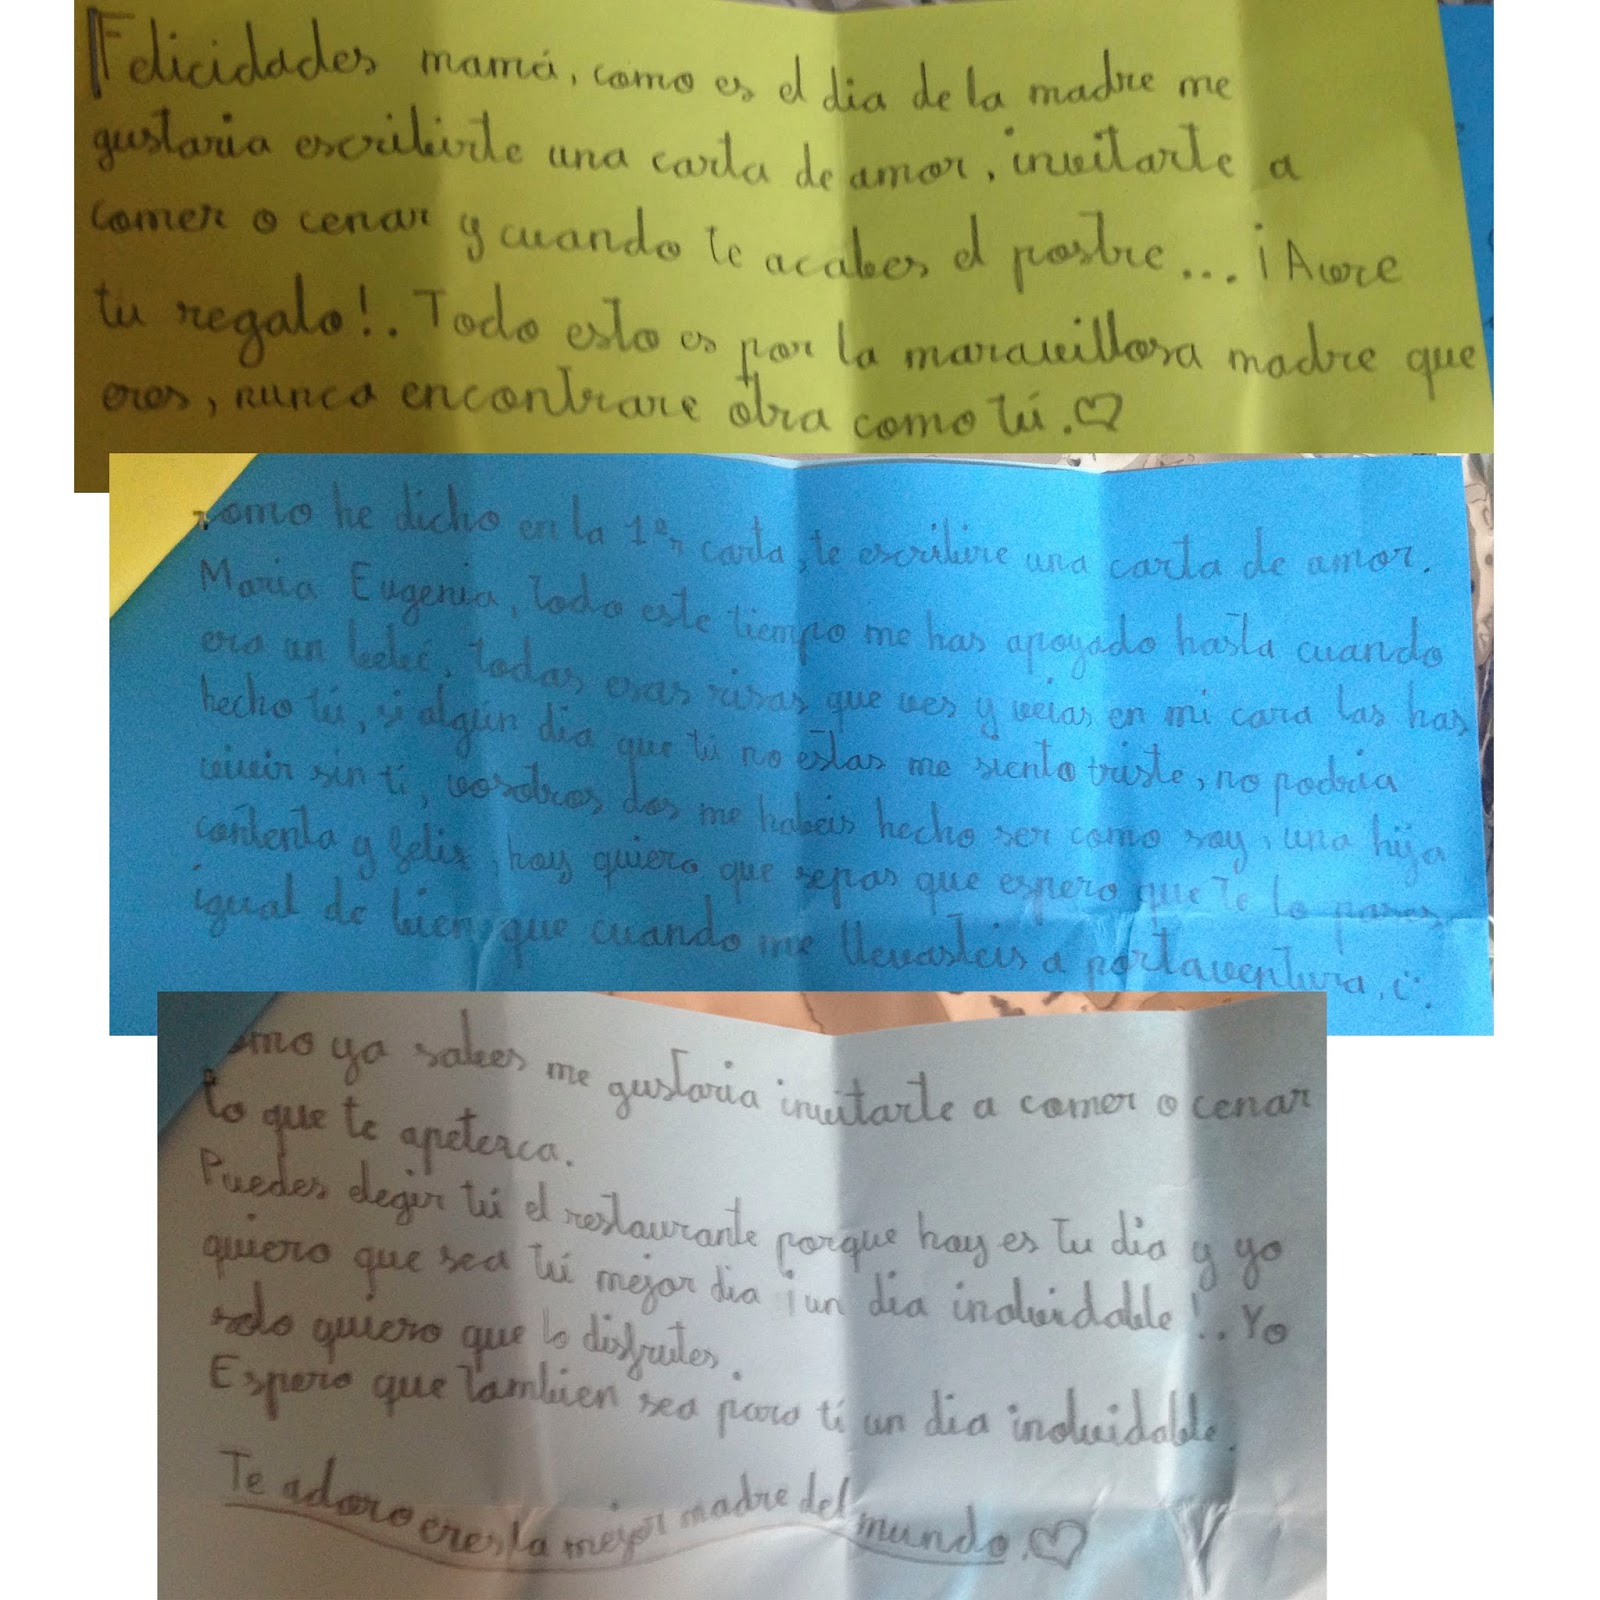 Felicidades mamá, como es el dia de la madre me
gustaria escribirte una carta de amor, invitarte a
comer o cenar y cuando te acabes el postre... ¡Avore
tu regalo!. Todo esto es por la maravillosa madre que
eres, nunca encontrare otra como tú.
omo he dicho en la 1ª, carta, te escribire una carta de amor.
Maria Eugenia, todo este tiempo me has apoyado hasta cuando
era un bebé, todas esas risas que ves y veias en mi cara las has
hecho tú, si algún dia que tú no estas me siento triste, no podria
vivir sin ti, vosotros dos me habeis hecho ser como soy, una hija
contenta y feliz, hoy quiero que sepas que espero que te lo pases
igual de bien que cuando me llevasteis a portaventura. c:.
omo ya sabes me gustaria invitarte a comer o cenar
lo que te apetezca.
Puedes elegir tú el restaurante porque hoy es tu dia y yo
quiero que sea tú mejor dia ¡un dia inolvidable!. Yo
solo quiero que lo disfrutes.
Espero que tambien sea para ti un dia inolvidable.
Te adoro eres la mejor madre del mundo.